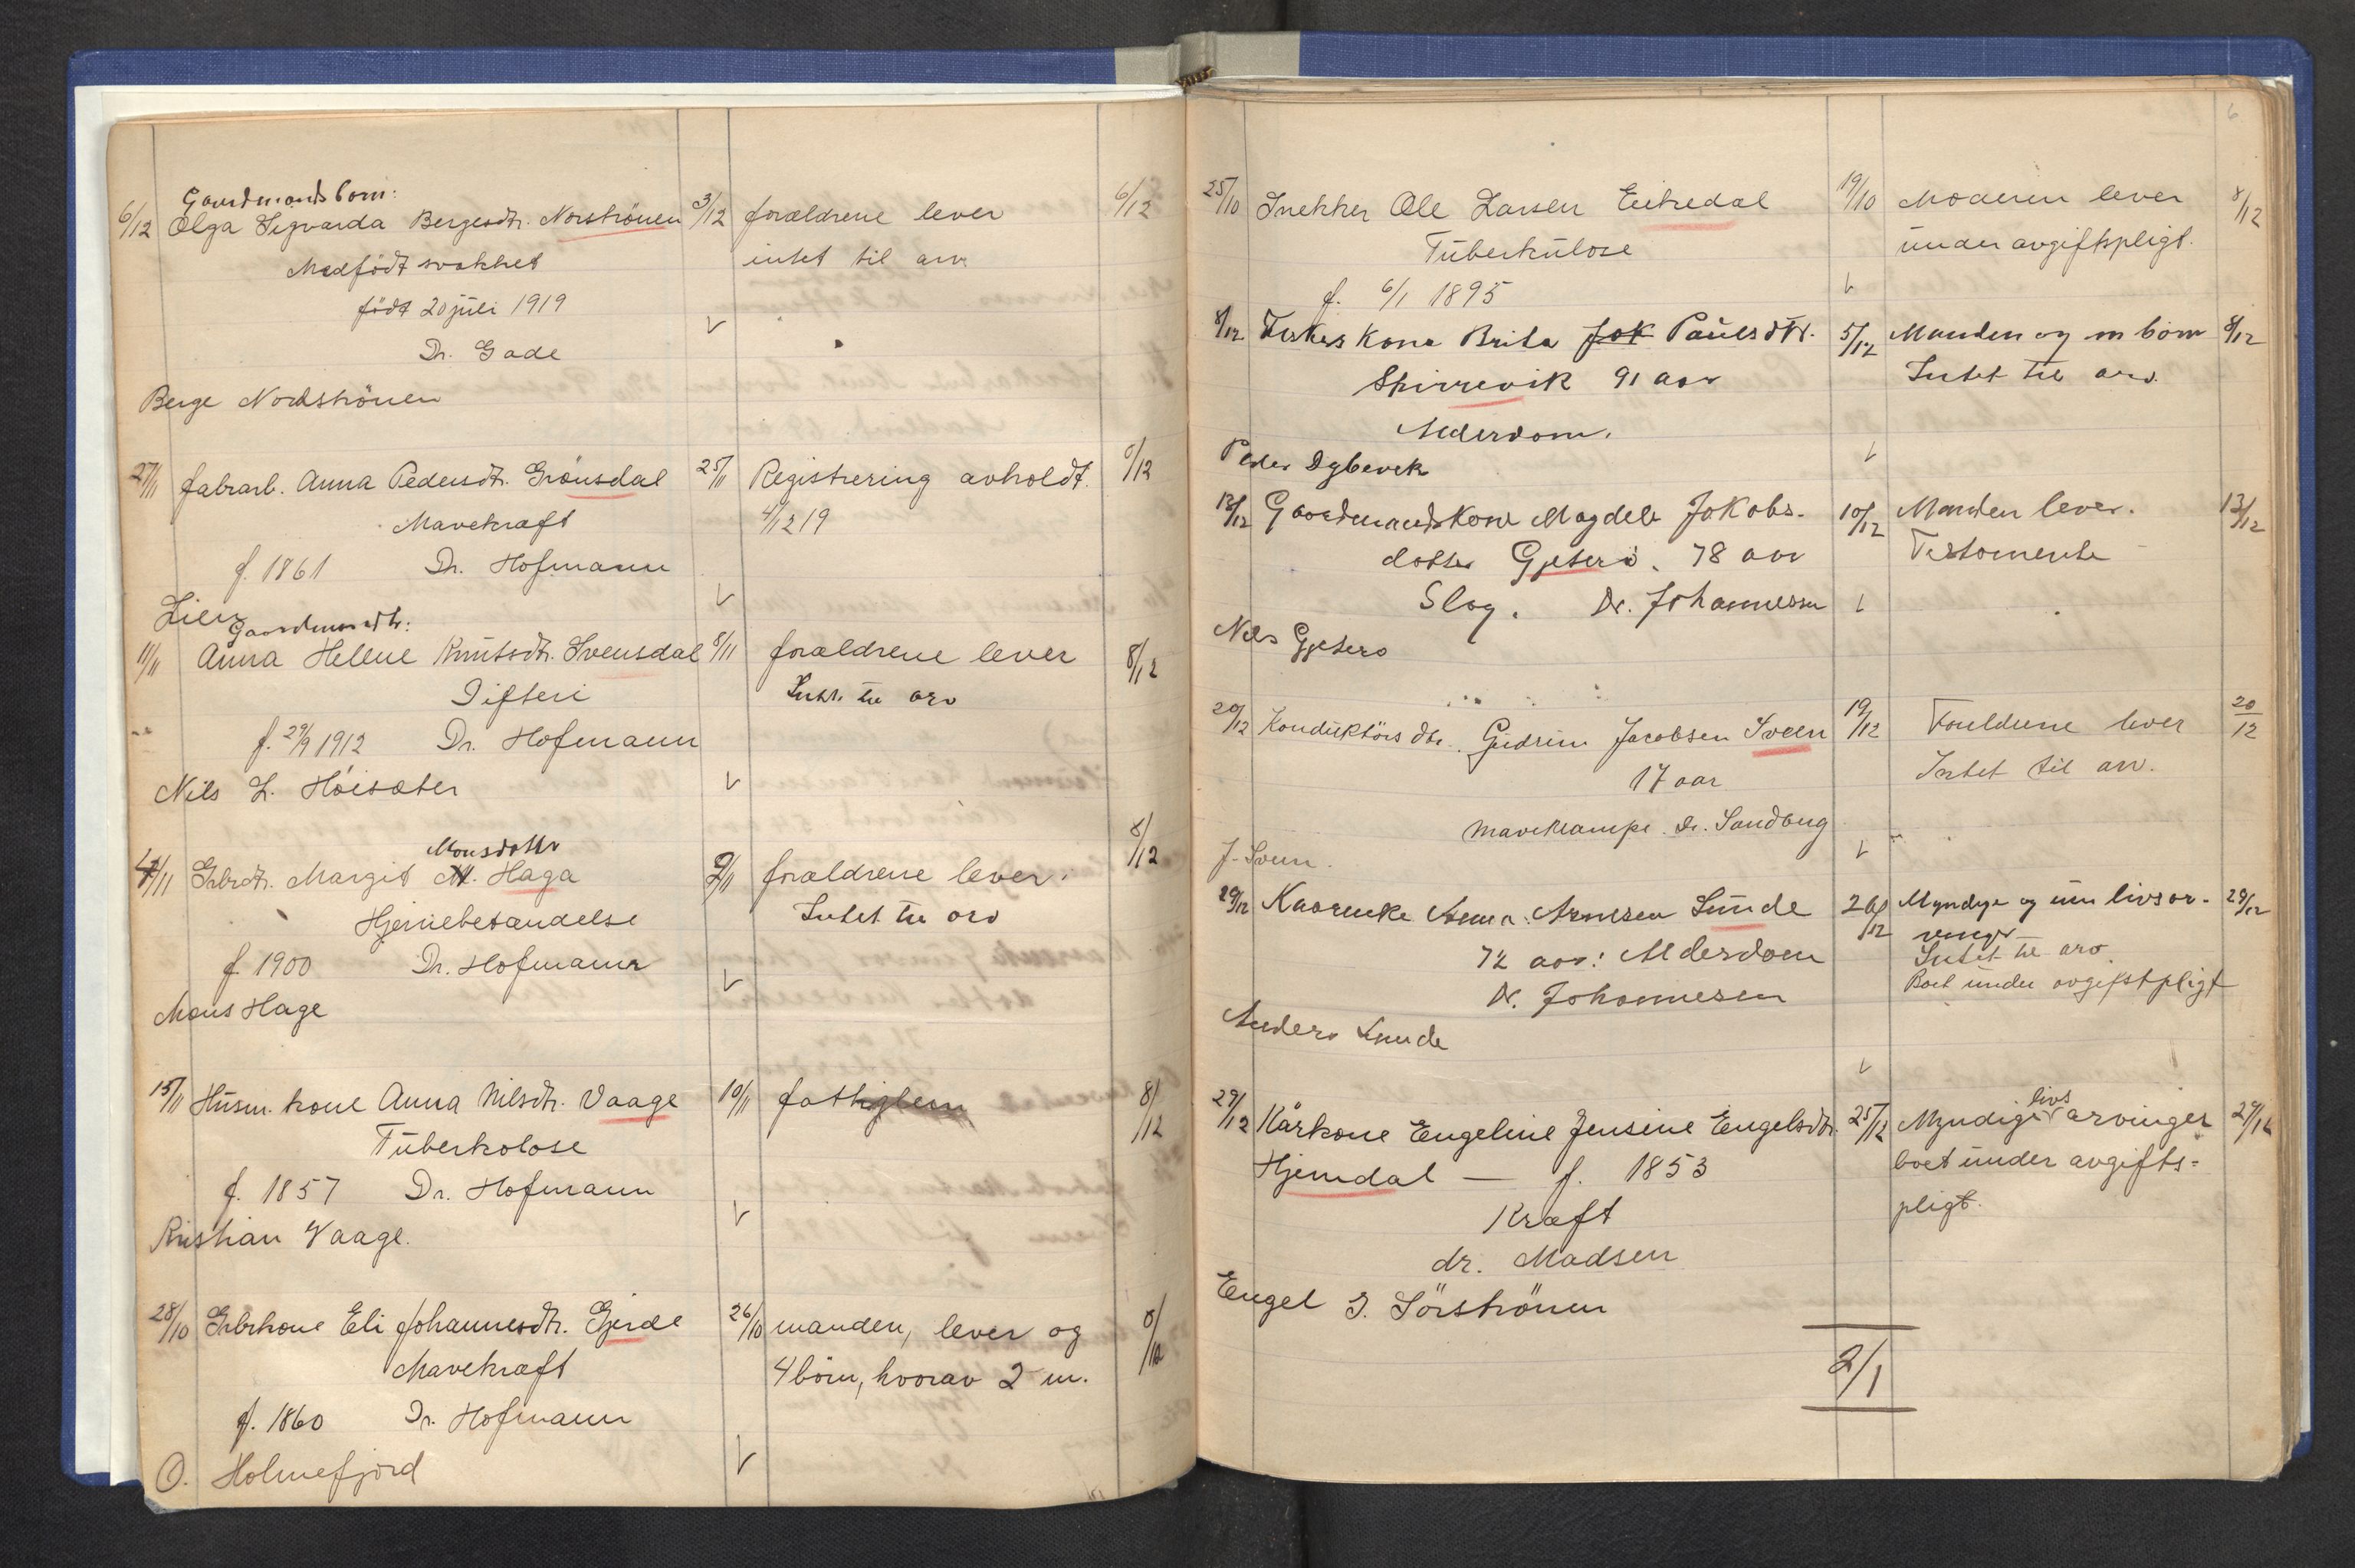 Gaardmandsbarn:
6/12 Olga Sigvarda Bergesdtr. Norströnen 3/12 forældrene lever 6/12
Medfödt svakhet intet til arv
födt 20 juli 1919
Dr. Gade
Berge Nordströnen
27/11 fabrarb. Anna Pedersdtr. Grönsdal 25/11 Registrering avholdt. 8/12
Mavekræft 4/12 19
f. 1861 Dr. Hofmann
Lien
Gaardmandsdtr:
11/11 Anna Helene Knutsdtr. Svensdal 8/11 forældrene lever 8/12
Difteri Intet til arv
f. 29/9 1912 Dr. Hofmann
Nils L. Höisæter
Monsdotter
4/11 Grbrdtr. Margit M. Haga 2/11 forældrene lever. 8/12
Hjernebetændelse Intet til arv
f. 1900 Dr. Hofmann
Mons Hage
15/11 Husm. kone Anna Nilsdtr. Vaage 10/11 fattiglem 8/12
Tüberkolose
f. 1857 Dr. Hofmann
Kristian Vaage.
28/10 Grbrkone Eli Johannesdtr. Gjerde 26/10 manden, lever og 8/12
Mavekræft 4 börn, hvorav 2 m.
f. 1860 Dr. Hofmann
O. Holmefjord
6
25/10 Snekker Ole Larsen Eikedal 19/10 Moderen lever 8/12
Tüberkülose under avgiftspligt.
f. 6/1 1895
8/12 Fiskers Kone Brita Jok Paulsdtr. 5/12 Manden og m börn 8/12
Skirrevik 91 aar Intet til arv.
Alderdom.
Peder Dybevik
13/12 Gaardmandskone Magdele Jokobs- 10/12 Manden lever. 13/12
dotter Gjeterö. 78 aar Testamente
Slag. Dr. Johannesen
Nils Gjeterö
20/12 Konduktörs dtr. Gudrun Jacobsen Sveen 19/12 Foreldrene lever 20/12
17 aar Intet til arv.
mavekrampe. Dr. Sandberg
J. Sveen.
29/12 Kaarenke Anna Arnesen Lunde 26/12 Myndige og um livsar- 29/12
72 aar: Alderdom vinger
Intet til arv.
Dr. Johannesen Boet under avgiftspligt
Anders Lunde
29/12 Kårkone Engeline Jensine Engelsdtr. 25/12 Myndige livs arvinger 29/12
Hjemdal — f. 1853 boet under avgifts=
Kræft pligt.
dr. Madsen
Engel J. Sörströnen
2/1